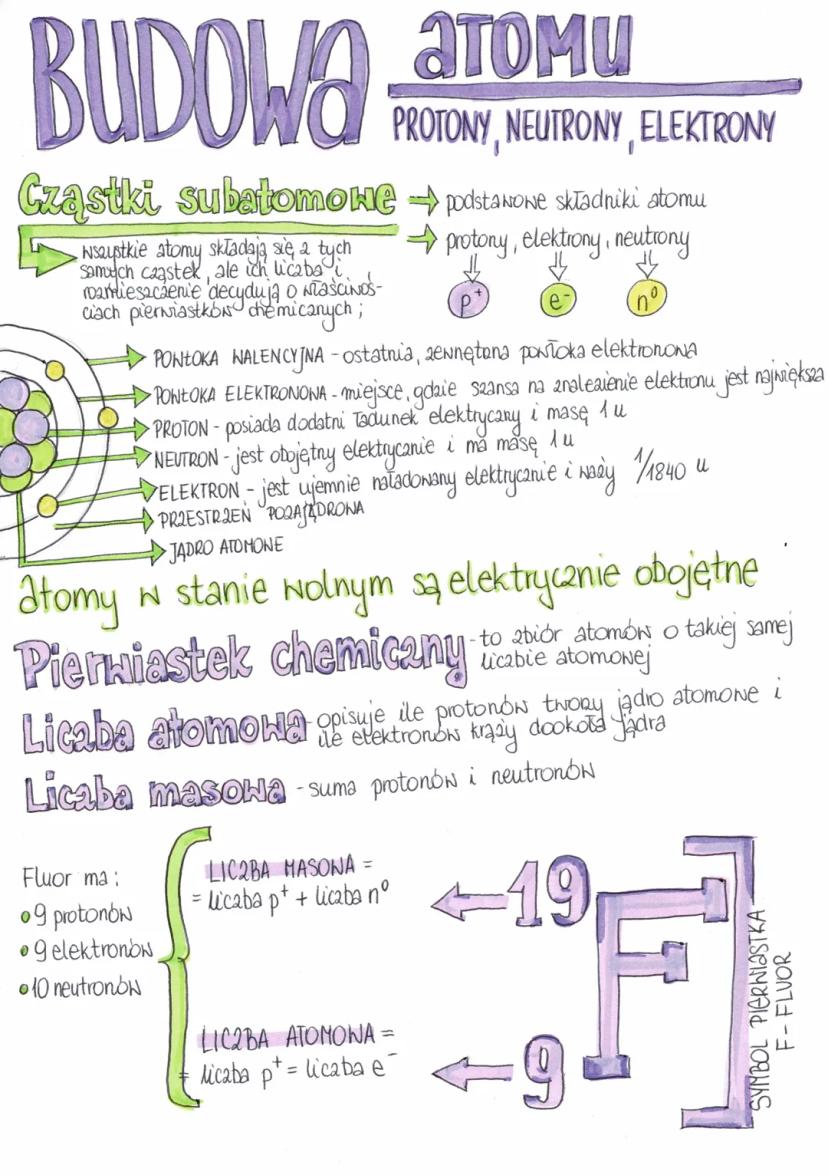 BUDOWA ATOMU
PROTONY, NEUTRONY, ELEKTRONY
Cząstki subatomowe → podstawowe składniki atomu
→ protony, elektrony, neutrony
p⁺ e⁻ n⁰
wszystkie atomy składają się z tych
samych cząstek, ale ich liczba i
rozmieszczenie decydują o właściwoś-
ciach pierwiastków chemicznych;
POWŁOKA WALENCYJNA - ostatnia, zewnętzna powłoka elektronowa
POWŁOKA ELEKTRONOWA - miejsce, gdzie szansa na znalezienie elektronu jest największa
PROTON - posiada dodatni ładunek elektryczny i masę 1 u
NEUTRON - jest obojętny elektrycznie i ma masę 1 u
ELEKTRON - jest ujemnie naładowany elektrycznie i waży 1/1840 u
PRZESTRZEŃ POZAJĄDROWA
JĄDRO ATOMOWE
atomy w stanie wolnym są elektrycznie obojętne
Pierwiastek chemiczny - to zbiór atomów o takiej samej
liczbie atomowej
Liczba atomowa - opisuje ile protonów tworzy jądro atomowe i
ile elektronów krąży dookoła jądra
Liczba masowa - suma protonów i neutronów
Fluor ma:
• 9 protonów
• 9 elektronów
• 10 neutronów
LICZBA MASOWA =
= liczba p⁺ + liczba n⁰
LICZBA ATOMOWA =
= liczba p⁺ = liczba e⁻
← 19
F
← 9
SYMBOL PIERWIASTKA
F - FLUOR